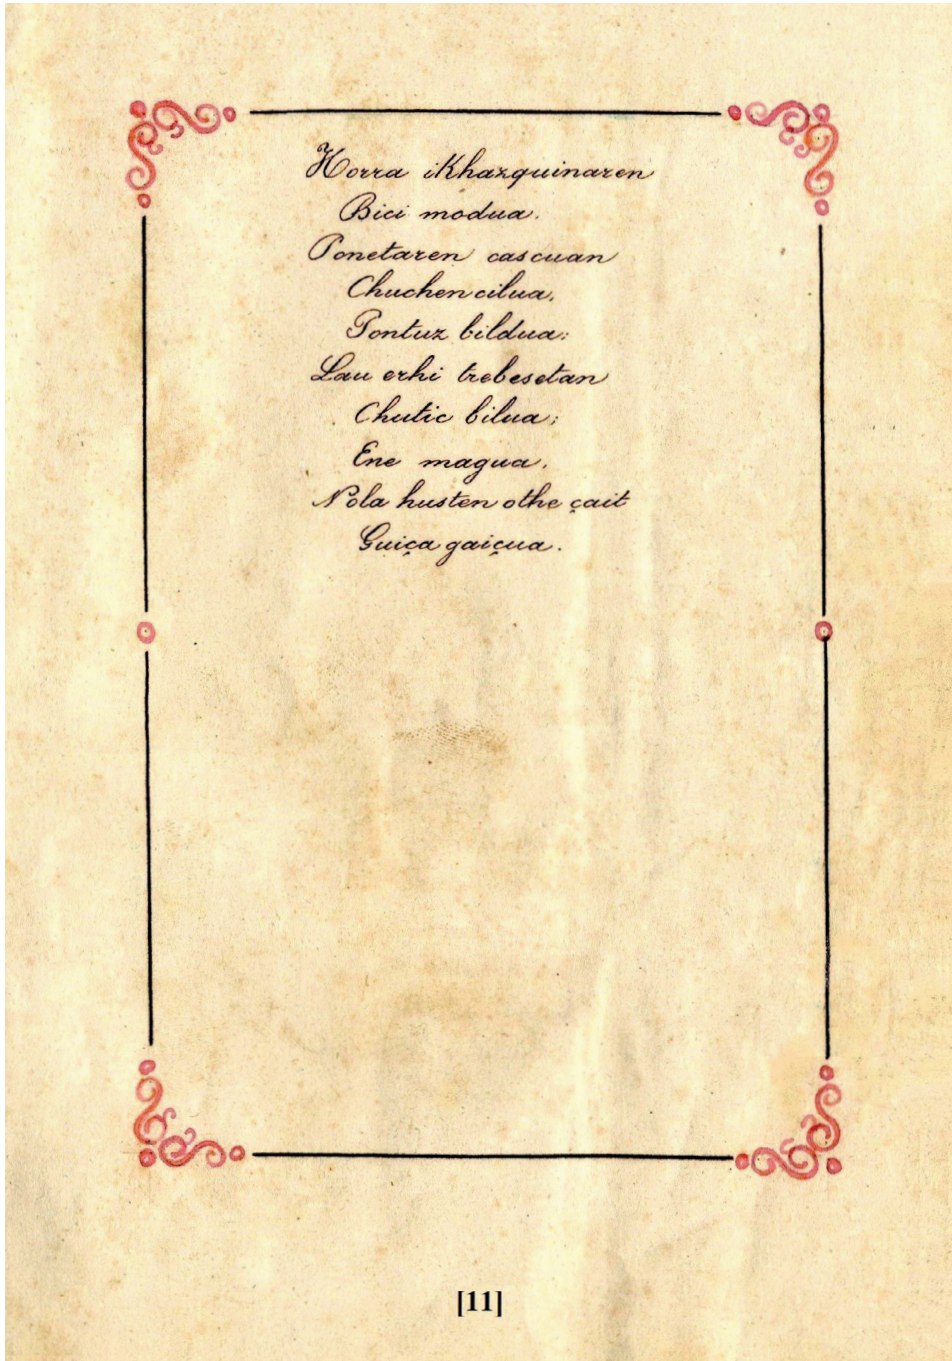 Horra ikhazquinaren
Bici modua.
Ponetaren cascuan
Chuchen cilua,
Pontuz bildua;
Lau erhi trebesetan
Chutic bilua;
Ene magua,
Nola husten othe çait
Guiça gaiçua.
[11]